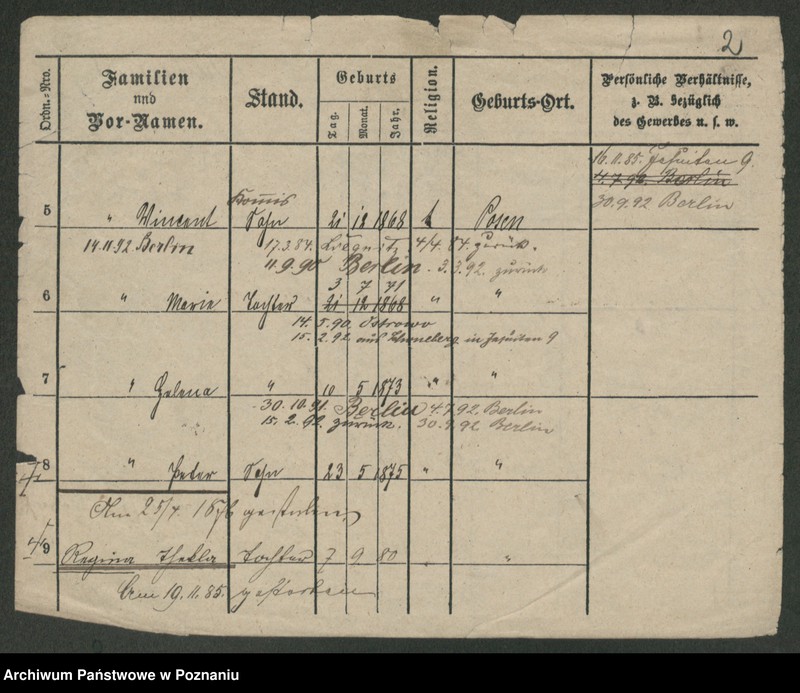 2
Ordn.-Nro.
Familien
und
Vor-Namen.
Stand.
Geburts
Tag.
Monat.
Jahr.
Religion.
Geburts-Ort.
Persönliche Verhältnisse,
z. B. bezüglich
des Gewerbes u. s. w.
16.11.85. Jesuiten 9.
4.7.92 Berlin
30.9.92 Berlin
Kommis
5 " Vincent Sohn 21 12 1868 k Posen
14.11.92 Berlin 17.3.84. Liegnitz, 4/4. 84. zurück.
11.9.90 Berlin. 3.3.92. zurück
3 7 71
6 " Marie Tochter 21 12 1868 " "
14. 5. 90. Ostrowo
15. 2. 92. aus in Jesuiten 9
7 " Helena " 10 5 1873 " "
30. 10. 91. Berlin 4.7.92 Berlin
15. 2. 92. zurück. 30.9.92 Berlin
8 " Peter Sohn 23 5 1875 " "
Am 25/4. 1876 gestorben
9 Regina Thekla Tochter 7 9 80 "
Am 19.11.85. gestorben
Archiwum Państwowe w Poznaniu